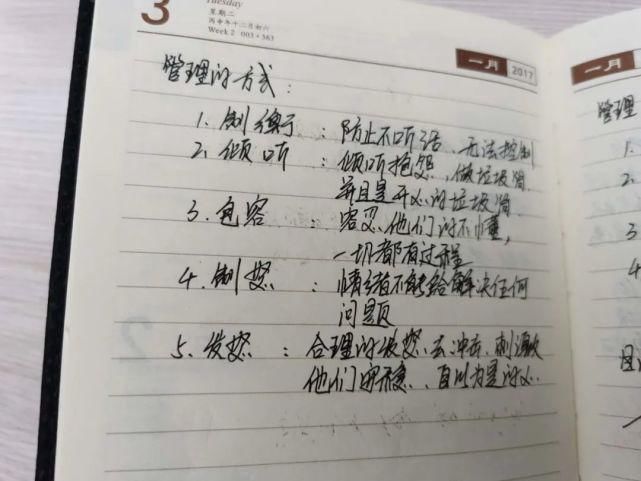 3
Tuesday
星期二
丙申年十二月初六
Week 2 003+363
一月 2017
一月
管理的方式:
1. 制缰: 防止不听话、无法控制
2. 倾听: 倾听抱怨、做垃圾筒
并且是开心的垃圾筒
3. 包容: 容忍他们的不懂,
一切都有过程
4. 制怒: 情绪不能给解决任何
问题
5. 发怒: 合理的发怒去冲击、刺激
他们的、自以为是的心
管理
1.
2.
3
4